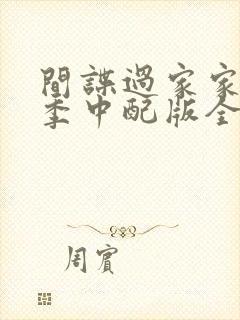 間諜過家家
季中配版全
周賓